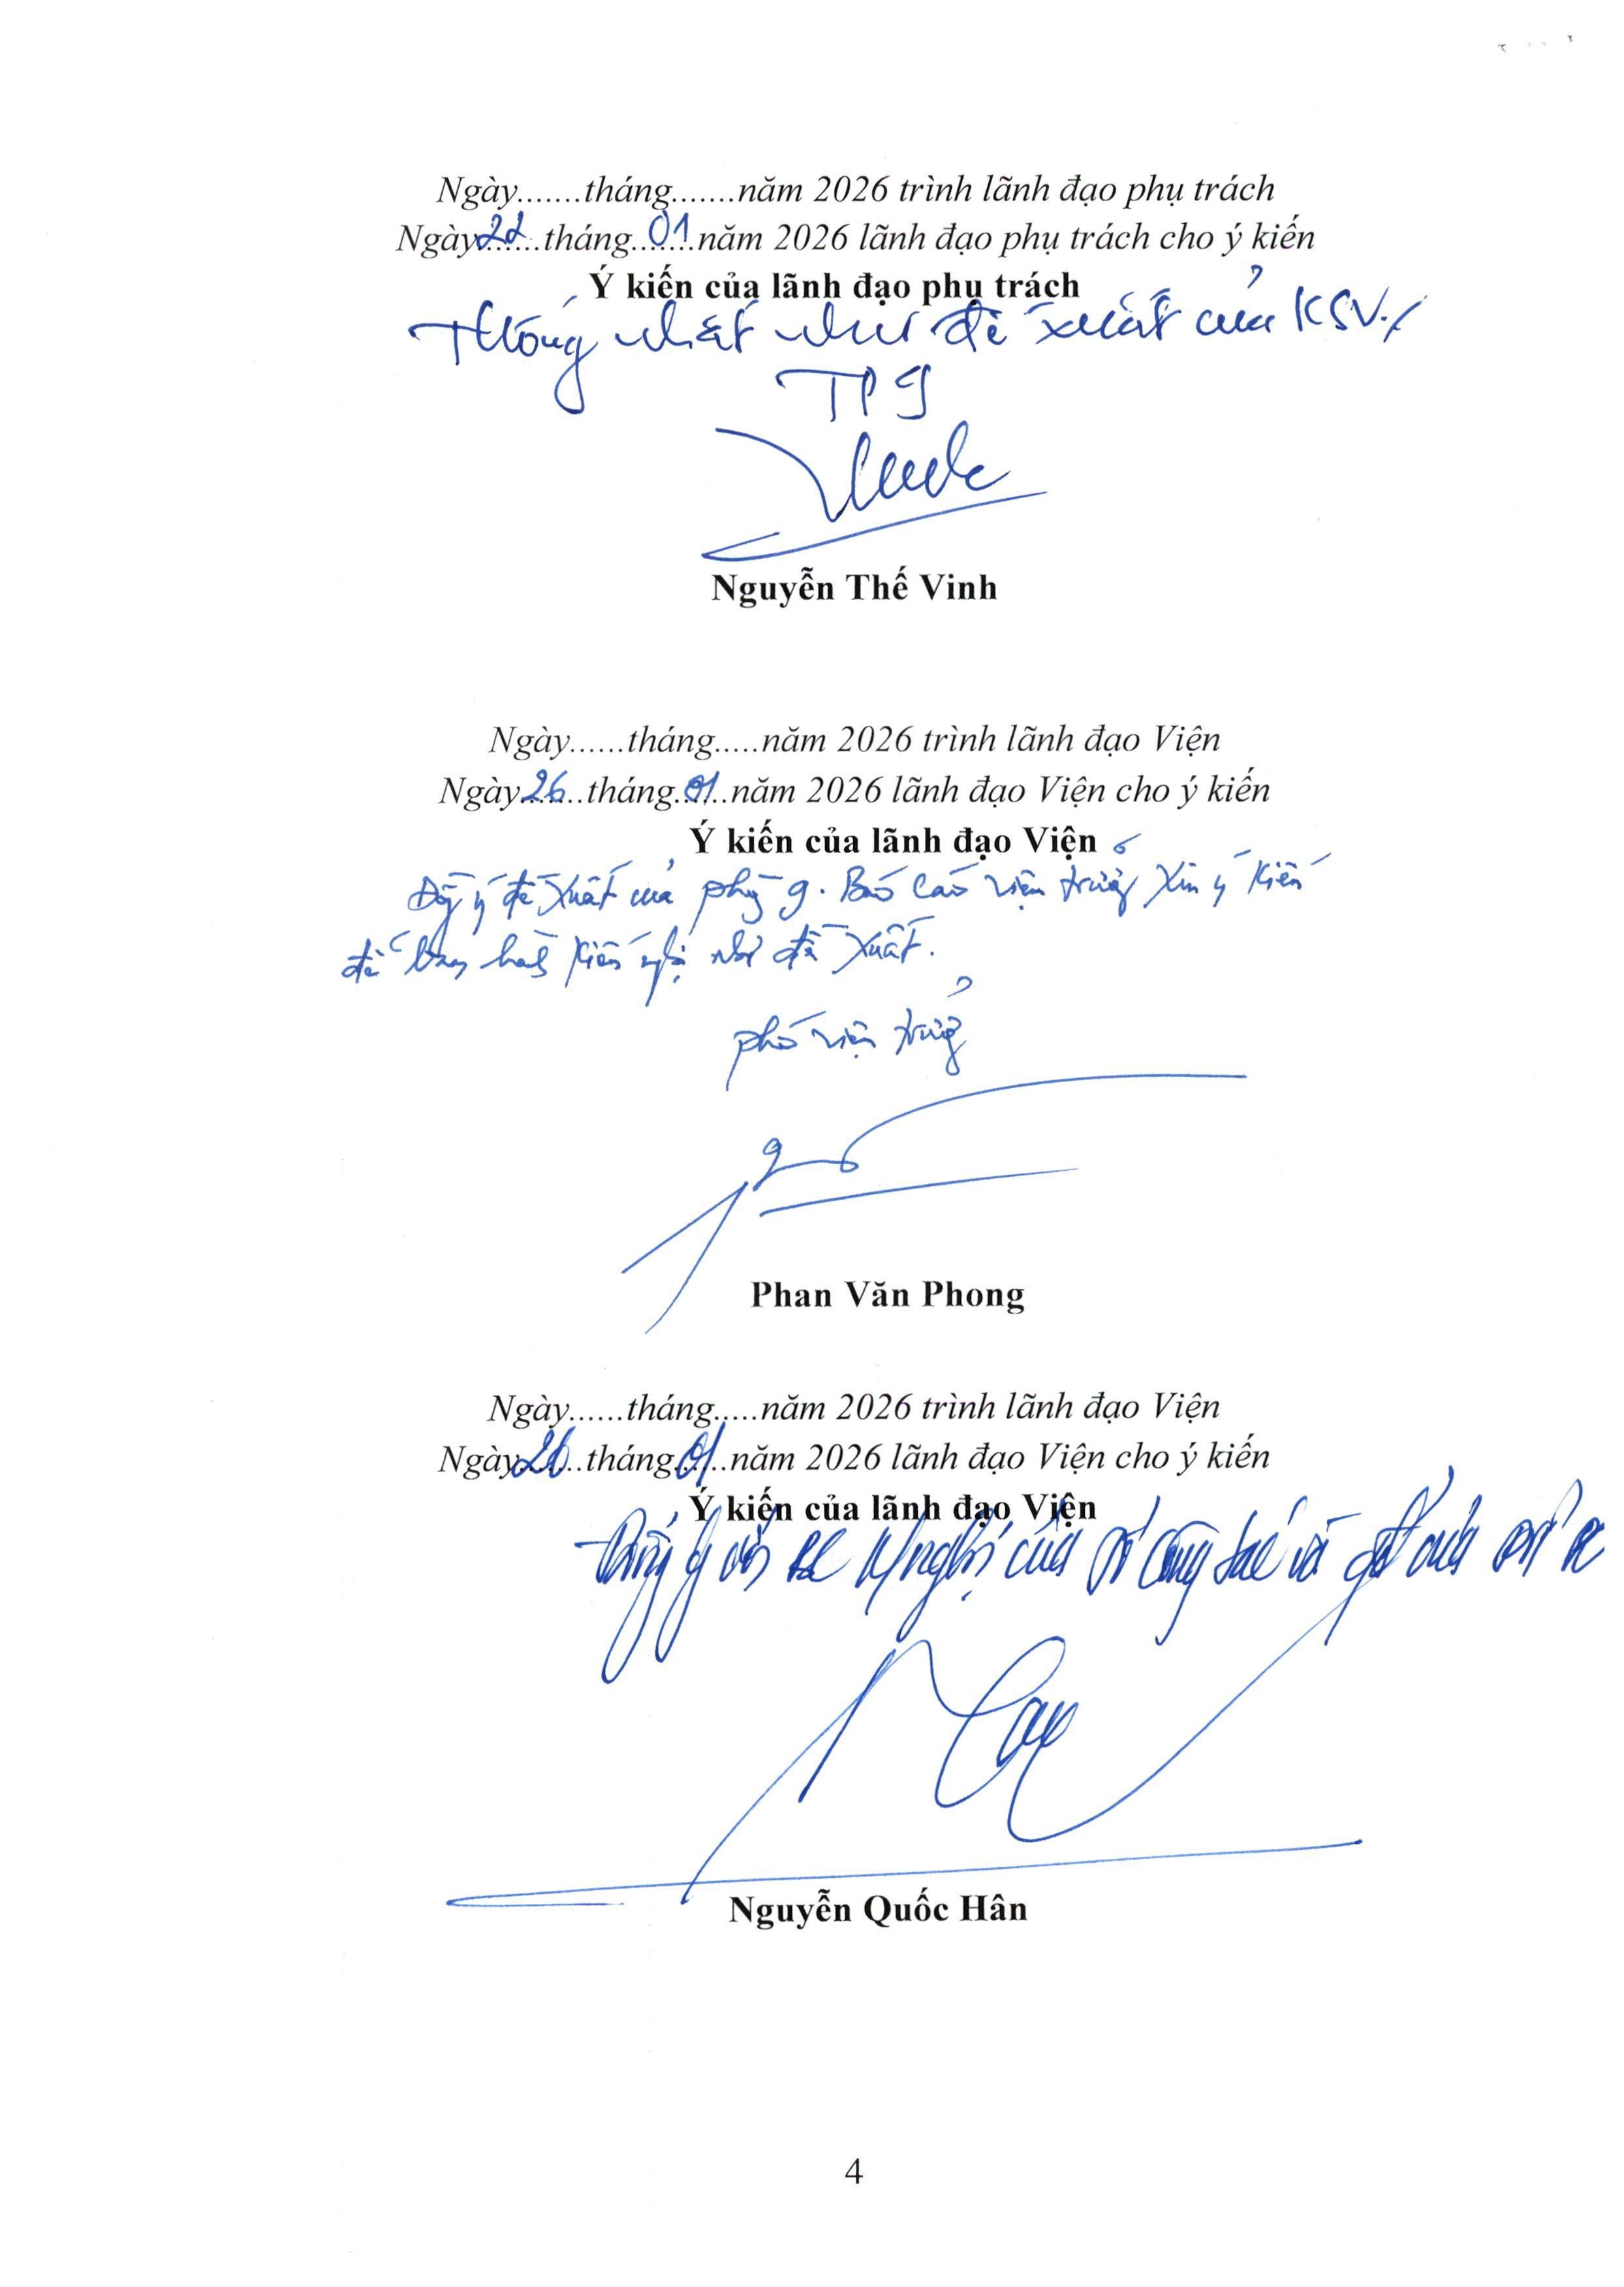 Ngày.......tháng.......năm 2026 trình lãnh đạo phụ trách
Ngày 22 tháng 01 năm 2026 lãnh đạo phụ trách cho ý kiến
Ý kiến của lãnh đạo phụ trách
Thống nhất như đề xuất của KSV./
TP9
Nguyễn Thế Vinh
Ngày......tháng.....năm 2026 trình lãnh đạo Viện
Ngày 26 tháng 01 năm 2026 lãnh đạo Viện cho ý kiến
Ý kiến của lãnh đạo Viện
Đồng ý đề xuất của phòng 9. Báo cáo viện trưởng xin ý kiến
để ban hành kiến nghị như đề xuất.
phó viện trưởng
Phan Văn Phong
Ngày......tháng.....năm 2026 trình lãnh đạo Viện
Ngày 26 tháng 01 năm 2026 lãnh đạo Viện cho ý kiến
Ý kiến của lãnh đạo Viện
Đồng ý của
Nguyễn Quốc Hân
4